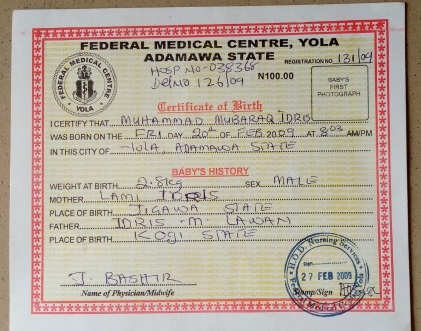 FEDERAL MEDICAL CENTRE, YOLA
ADAMAWA STATE
FEDERAL MEDICAL CENTRE
YOLA
HOSP NO-038368
Del No 126/09
N100.00
REGISTRATION NO 131/09
BABY'S
FIRST
PHOTOGRAPH
Certificate of Birth
I CERTIFY THAT MUHAMMAD MUBARAQ IDRIS
WAS BORN ON THE FRI DAY 20th OF FEB 2009 AT 8:03 AM/PM
IN THIS CITY OF YOLA, ADAMAWA STATE
BABY'S HISTORY
WEIGHT AT BIRTH 2.8kg SEX MALE
MOTHER LAMI IDRIS
PLACE OF BIRTH JIGAWA STATE
FATHER IDRIS M. LAWAN
PLACE OF BIRTH KOGI STATE
J. BASHIR
Name of Physician/Midwife
H.O.D. Nursing Services
27 FEB 2009
Stamp/Sign